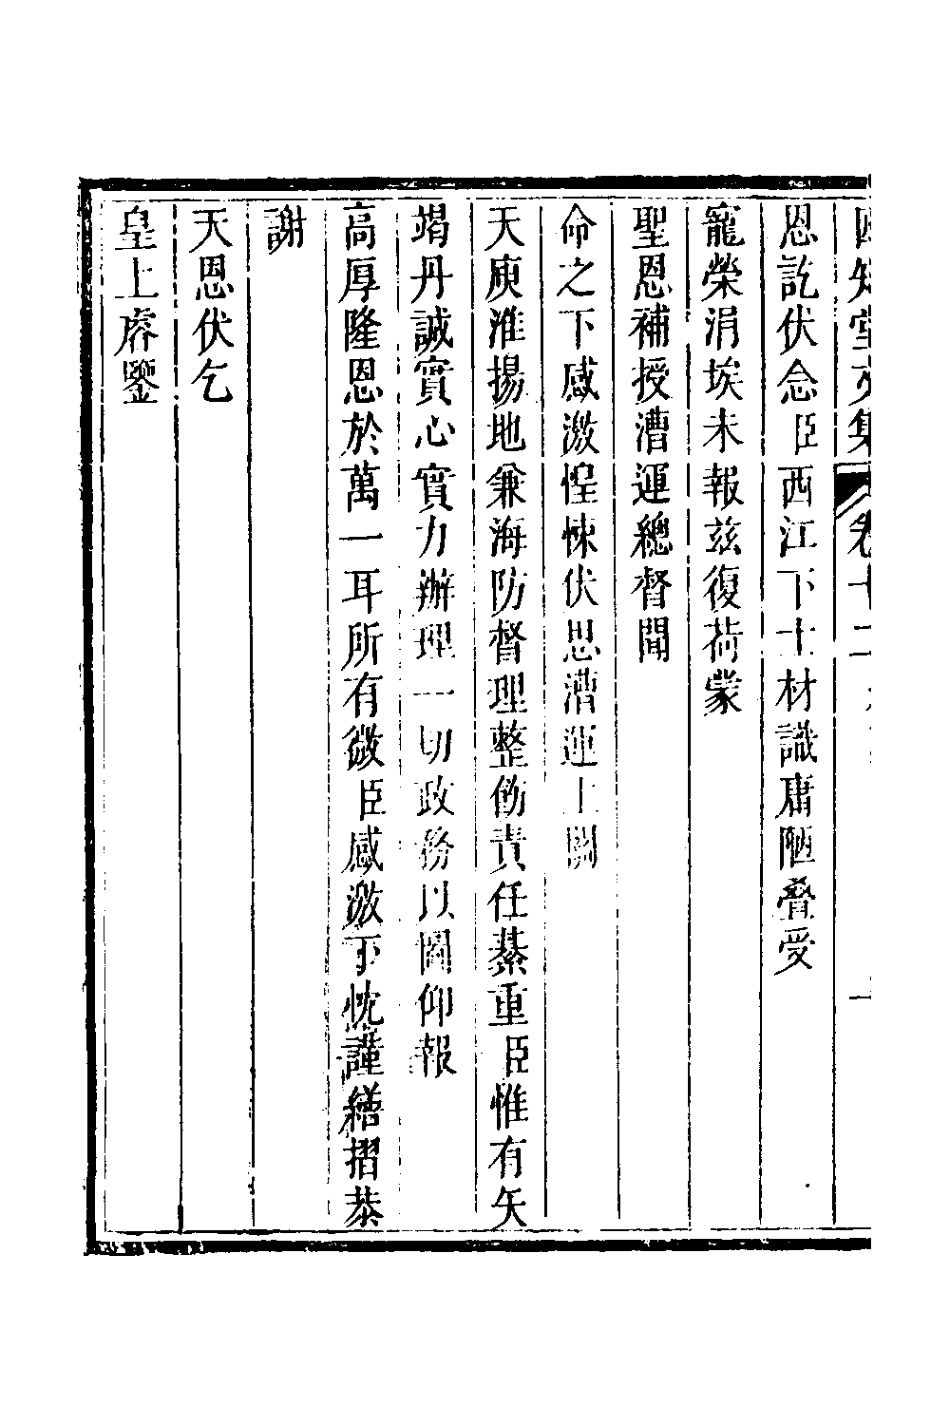 四知堂文集 卷十二
恩訖伏念臣西江下士材識庸陋叠受
寵榮涓埃未報茲復荷蒙
聖恩補授漕運總督聞
命之下感激惶悚伏思漕運上關
天庾淮揚地兼海防督理整飭責任綦重臣惟有矢
竭丹誠實心實力辦理一切政務以圖仰報
高厚隆恩於萬一耳所有微臣感激下忱謹繕摺恭
謝
天恩伏乞
皇上睿鑒